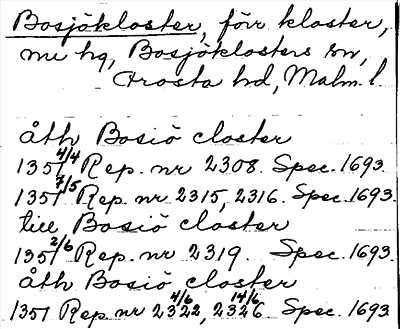 Bosjökloster, förr kloster,
nu hg, Bosjöklosters sn,
Frosta hd, Malm. l.
åth Bosiö closter
1351 4/4 Rep. nr 2308. Spec. 1693.
1351 7/5 Rep. nr 2315, 2316. Spec. 1693.
till Bosiö closter
1351 2/6 Rep. nr 2319. Spec. 1693.
åth Bosiö closter
1351 Rep nr 4/6 2322, 14/6 2326 Spec. 1693